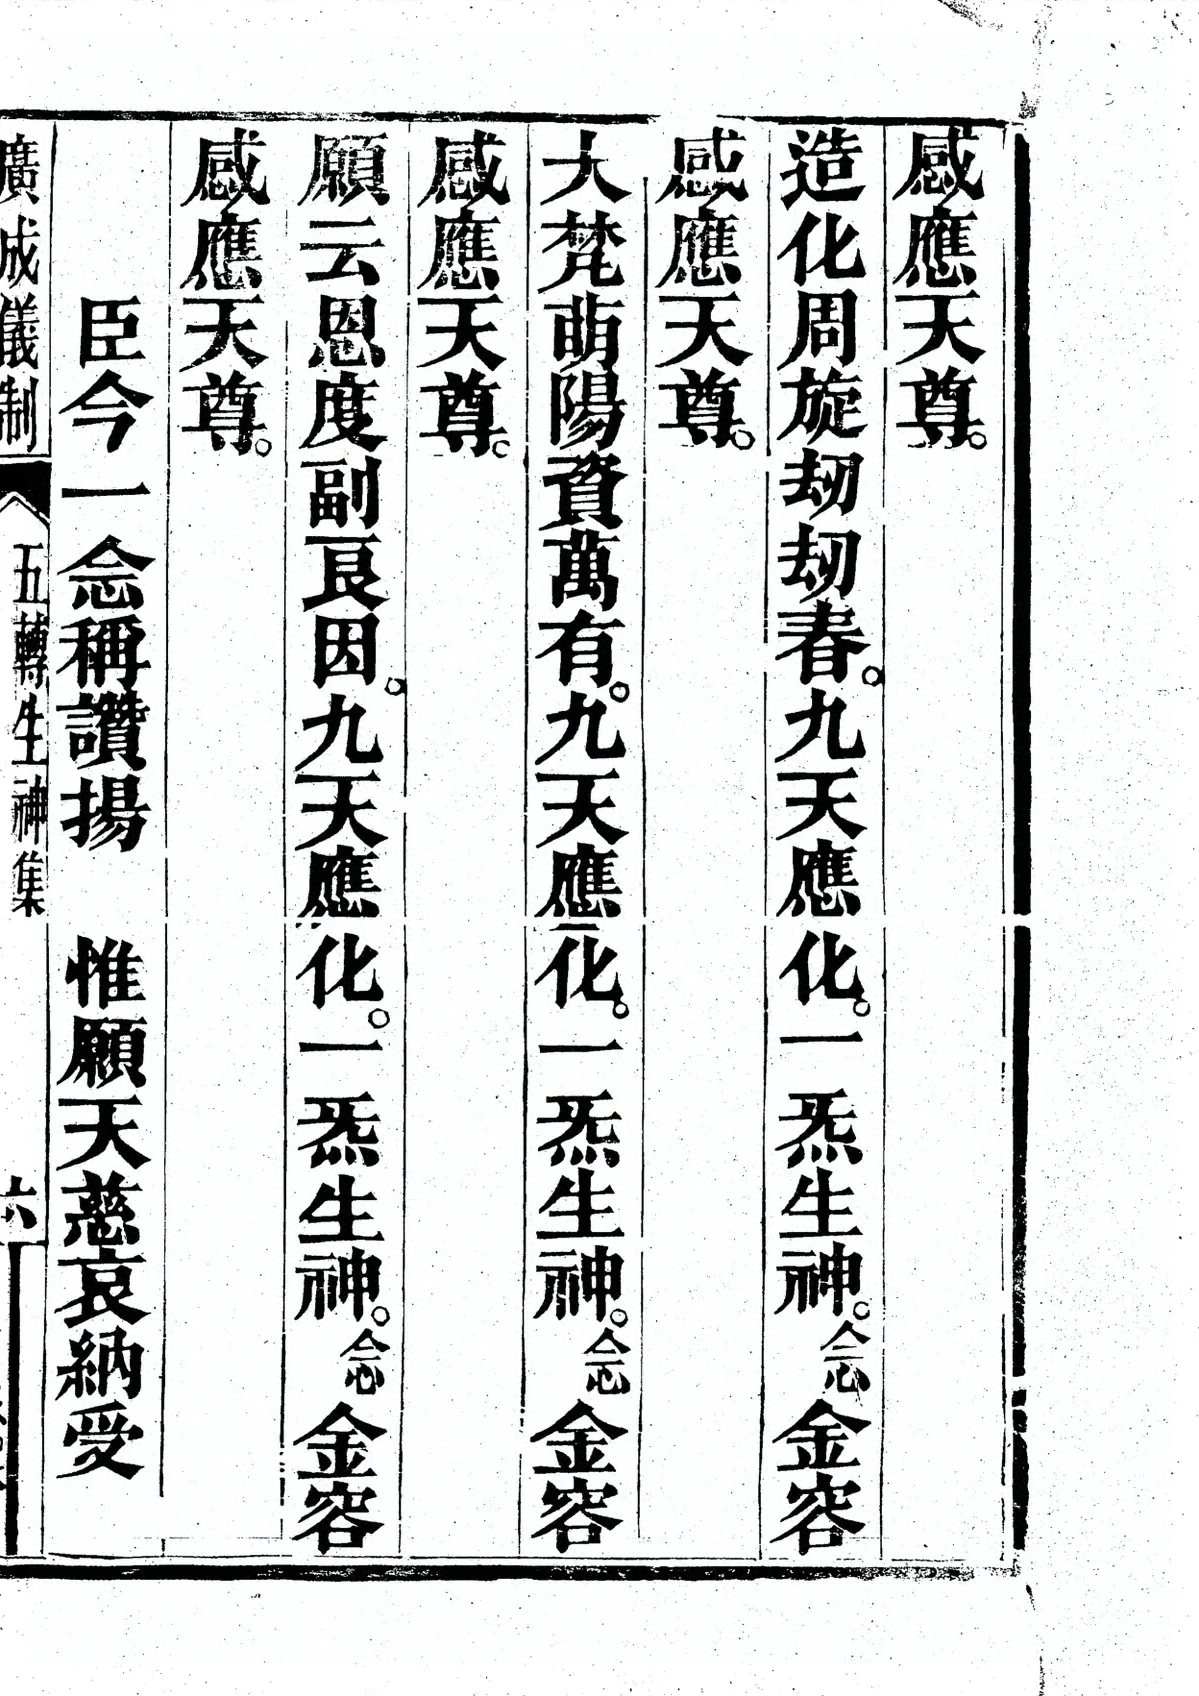 感應天尊。
造化周旋刧刧春。九天應化。一炁生神。念金容
感應天尊。
大梵萌陽資萬有。九天應化。一炁生神。念金容
感應天尊。
願云恩度副良因。九天應化。一炁生神。念金容
感應天尊。
臣今一念稱讚揚　惟願天慈哀納受
廣成儀制　五轉生神集　六